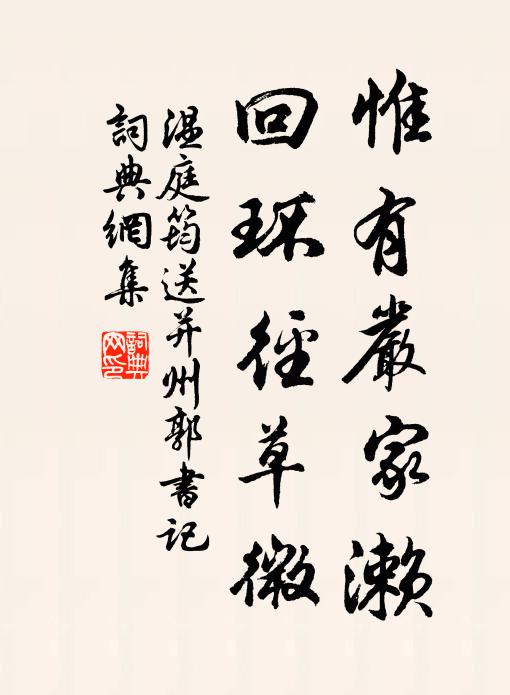 惟有嚴家瀨
回环徑草微
溫庭筠送并州郭書記
詞典網集
詞典网印